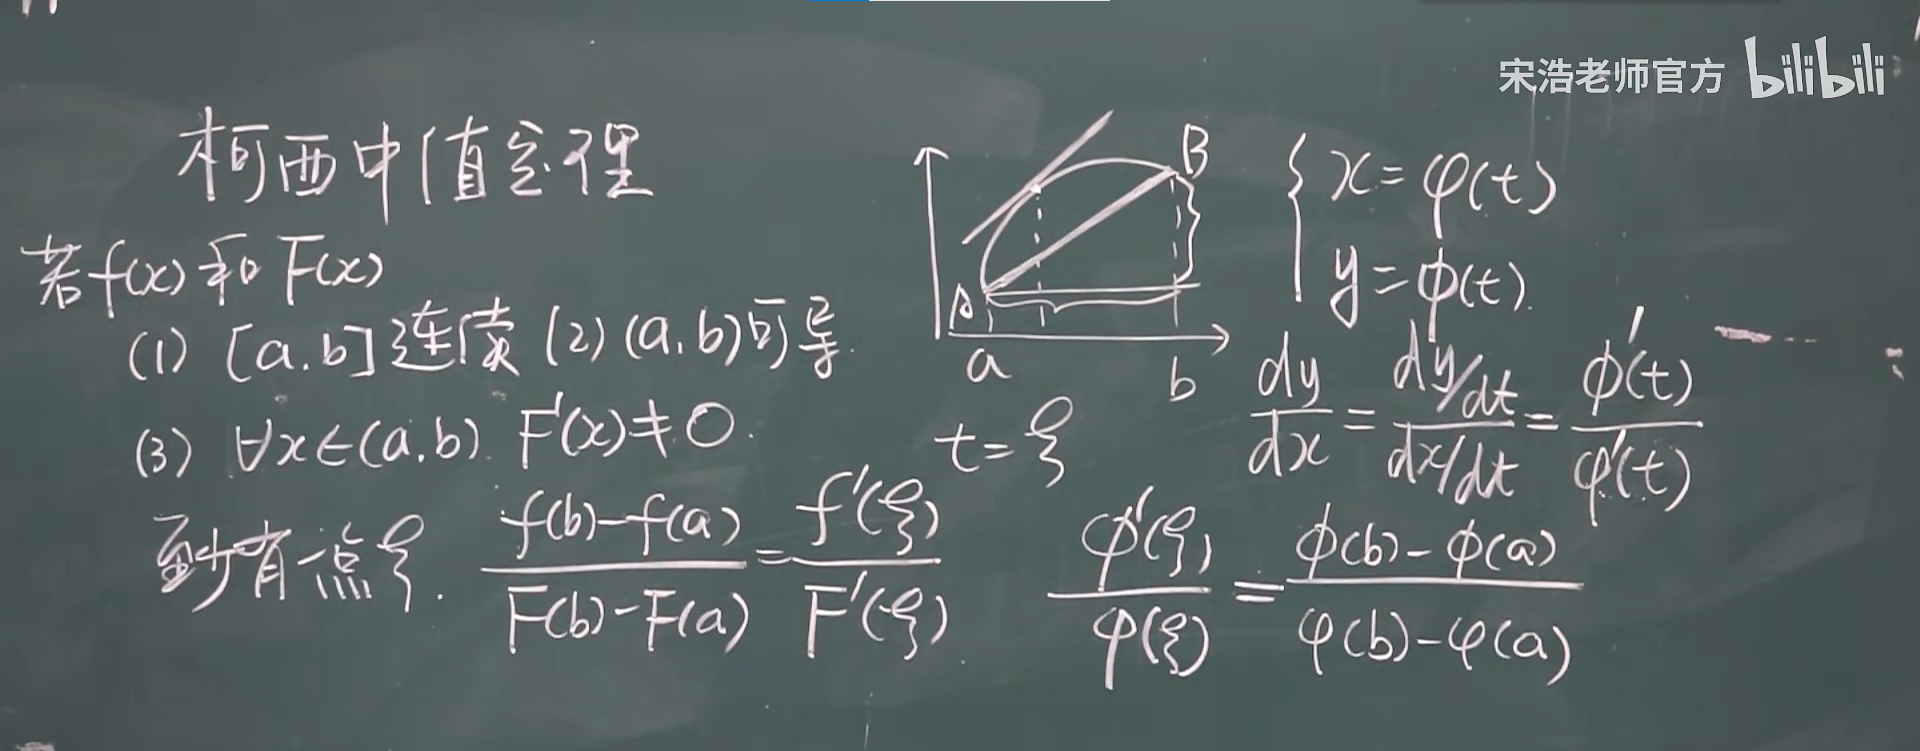 宋浩老师官方 bilibili
柯西中值定理
若f(x)和F(x)
(1) [a.b]连续 (2) (a,b)可导.
(3) ∀x∈(a.b). F'(x)≠0.
至少有一点ξ. (f(b)-f(a))/(F(b)-F(a)) = f'(ξ)/F'(ξ).
B
A
a b
{ x=φ(t)
y=ϕ(t).
dy/dx = (dy/dt)/(dx/dt) = ϕ'(t)/φ'(t)
t=ξ
ϕ'(ξ)/φ(ξ) = (ϕ(b)-ϕ(a))/(φ(b)-φ(a))